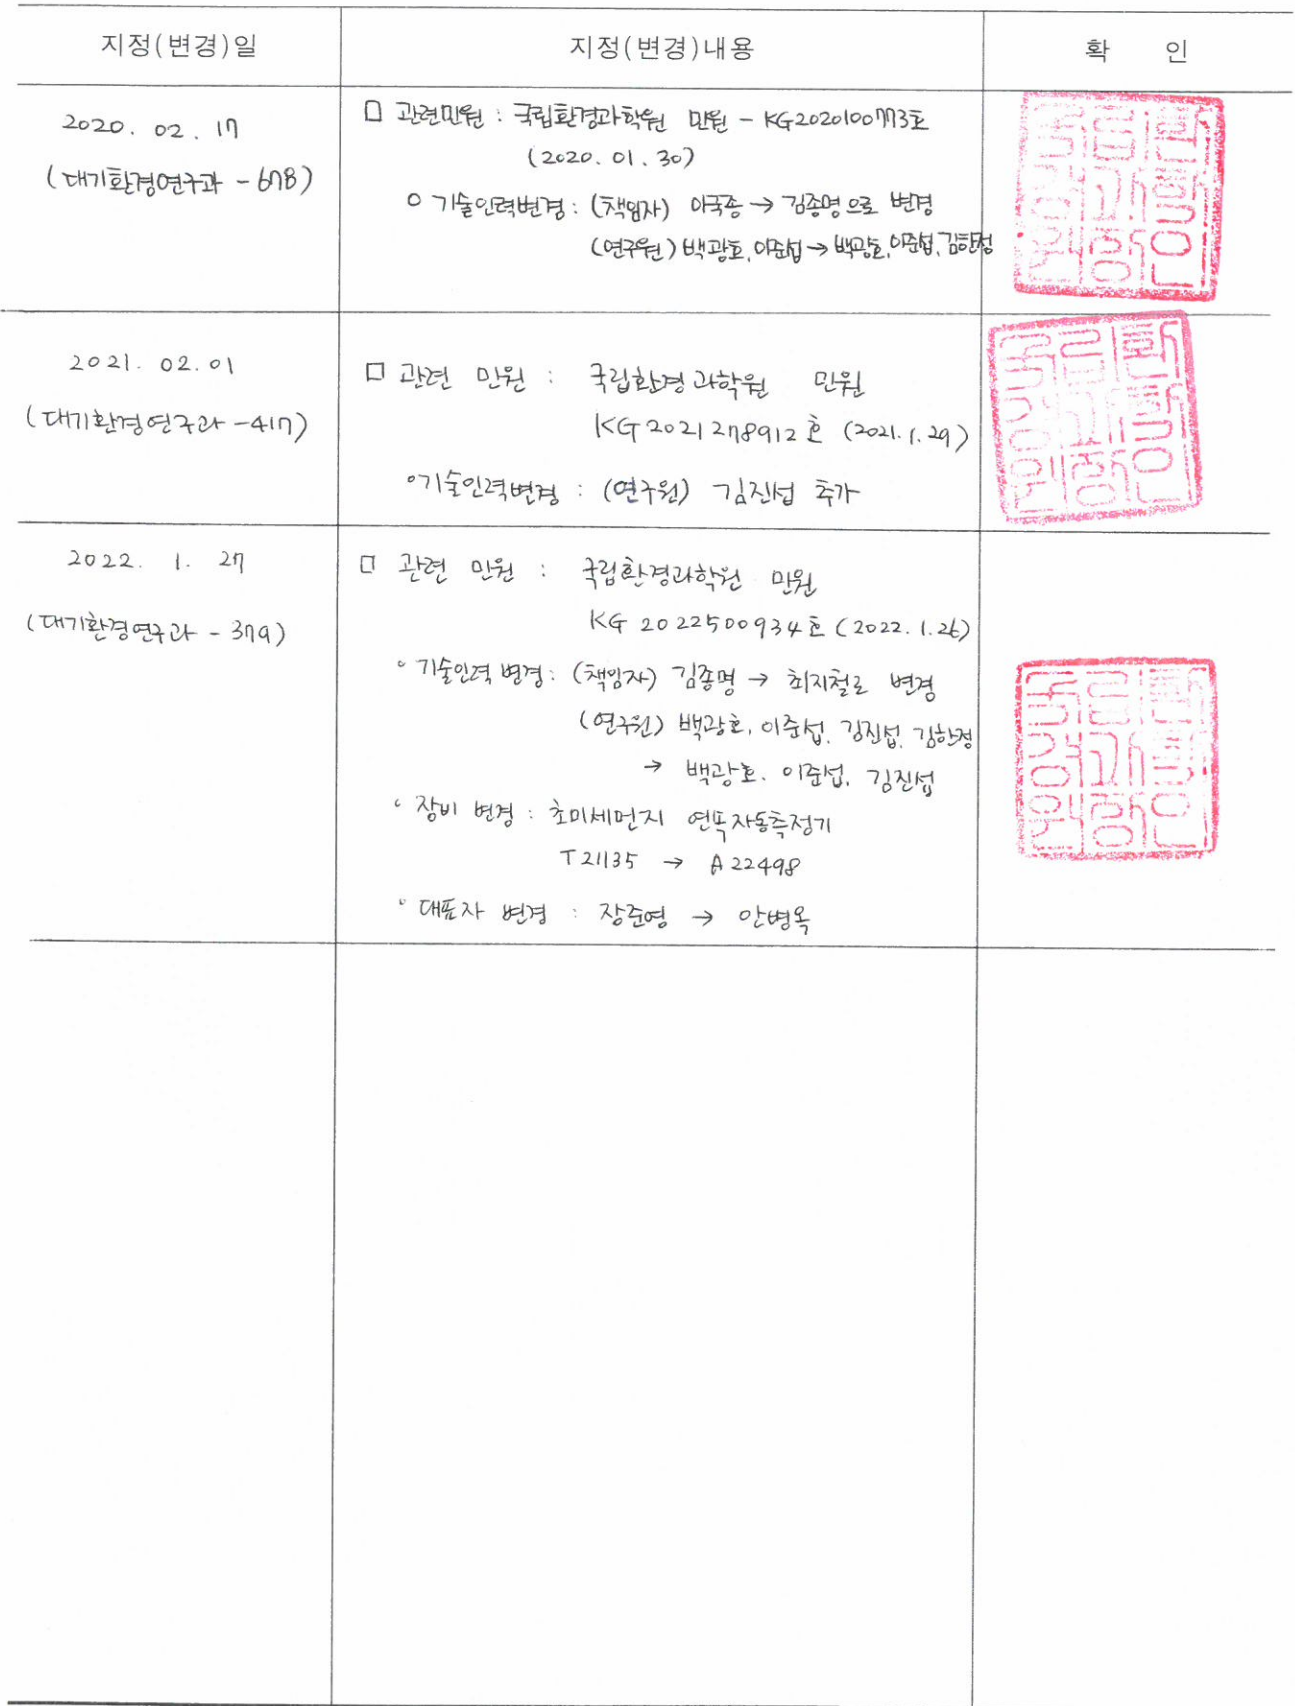 지정(변경)일 지정(변경)내용 확 인
2020. 02. 17
(대기환경연구과 - 678)
□ 관련민원 : 국립환경과학원 민원 - KG2020100773호
(2020. 01. 30)
○ 기술인력변경 : (책임자) 이국종 → 김종명으로 변경
(연구원) 백광호, 이준섭 → 백광호, 이준섭, 김한정
2021. 02. 01
(대기환경연구과 - 417)
□ 관련 민원 : 국립환경과학원 민원
KG 2021278912호 (2021. 1. 29)
○ 기술인력변경 : (연구원) 김진섭 추가
2022. 1. 27
(대기환경연구과 - 379)
□ 관련 민원 : 국립환경과학원 민원
KG 2022500934호 (2022. 1. 26)
○ 기술인력 변경 : (책임자) 김종명 → 최지철로 변경
(연구원) 백광호, 이준섭, 김진섭, 김한정
→ 백광호, 이준섭, 김진섭
○ 장비 변경 : 초미세먼지 연속자동측정기
T21135 → A22498
○ 대표자 변경 : 장준영 → 안병옥